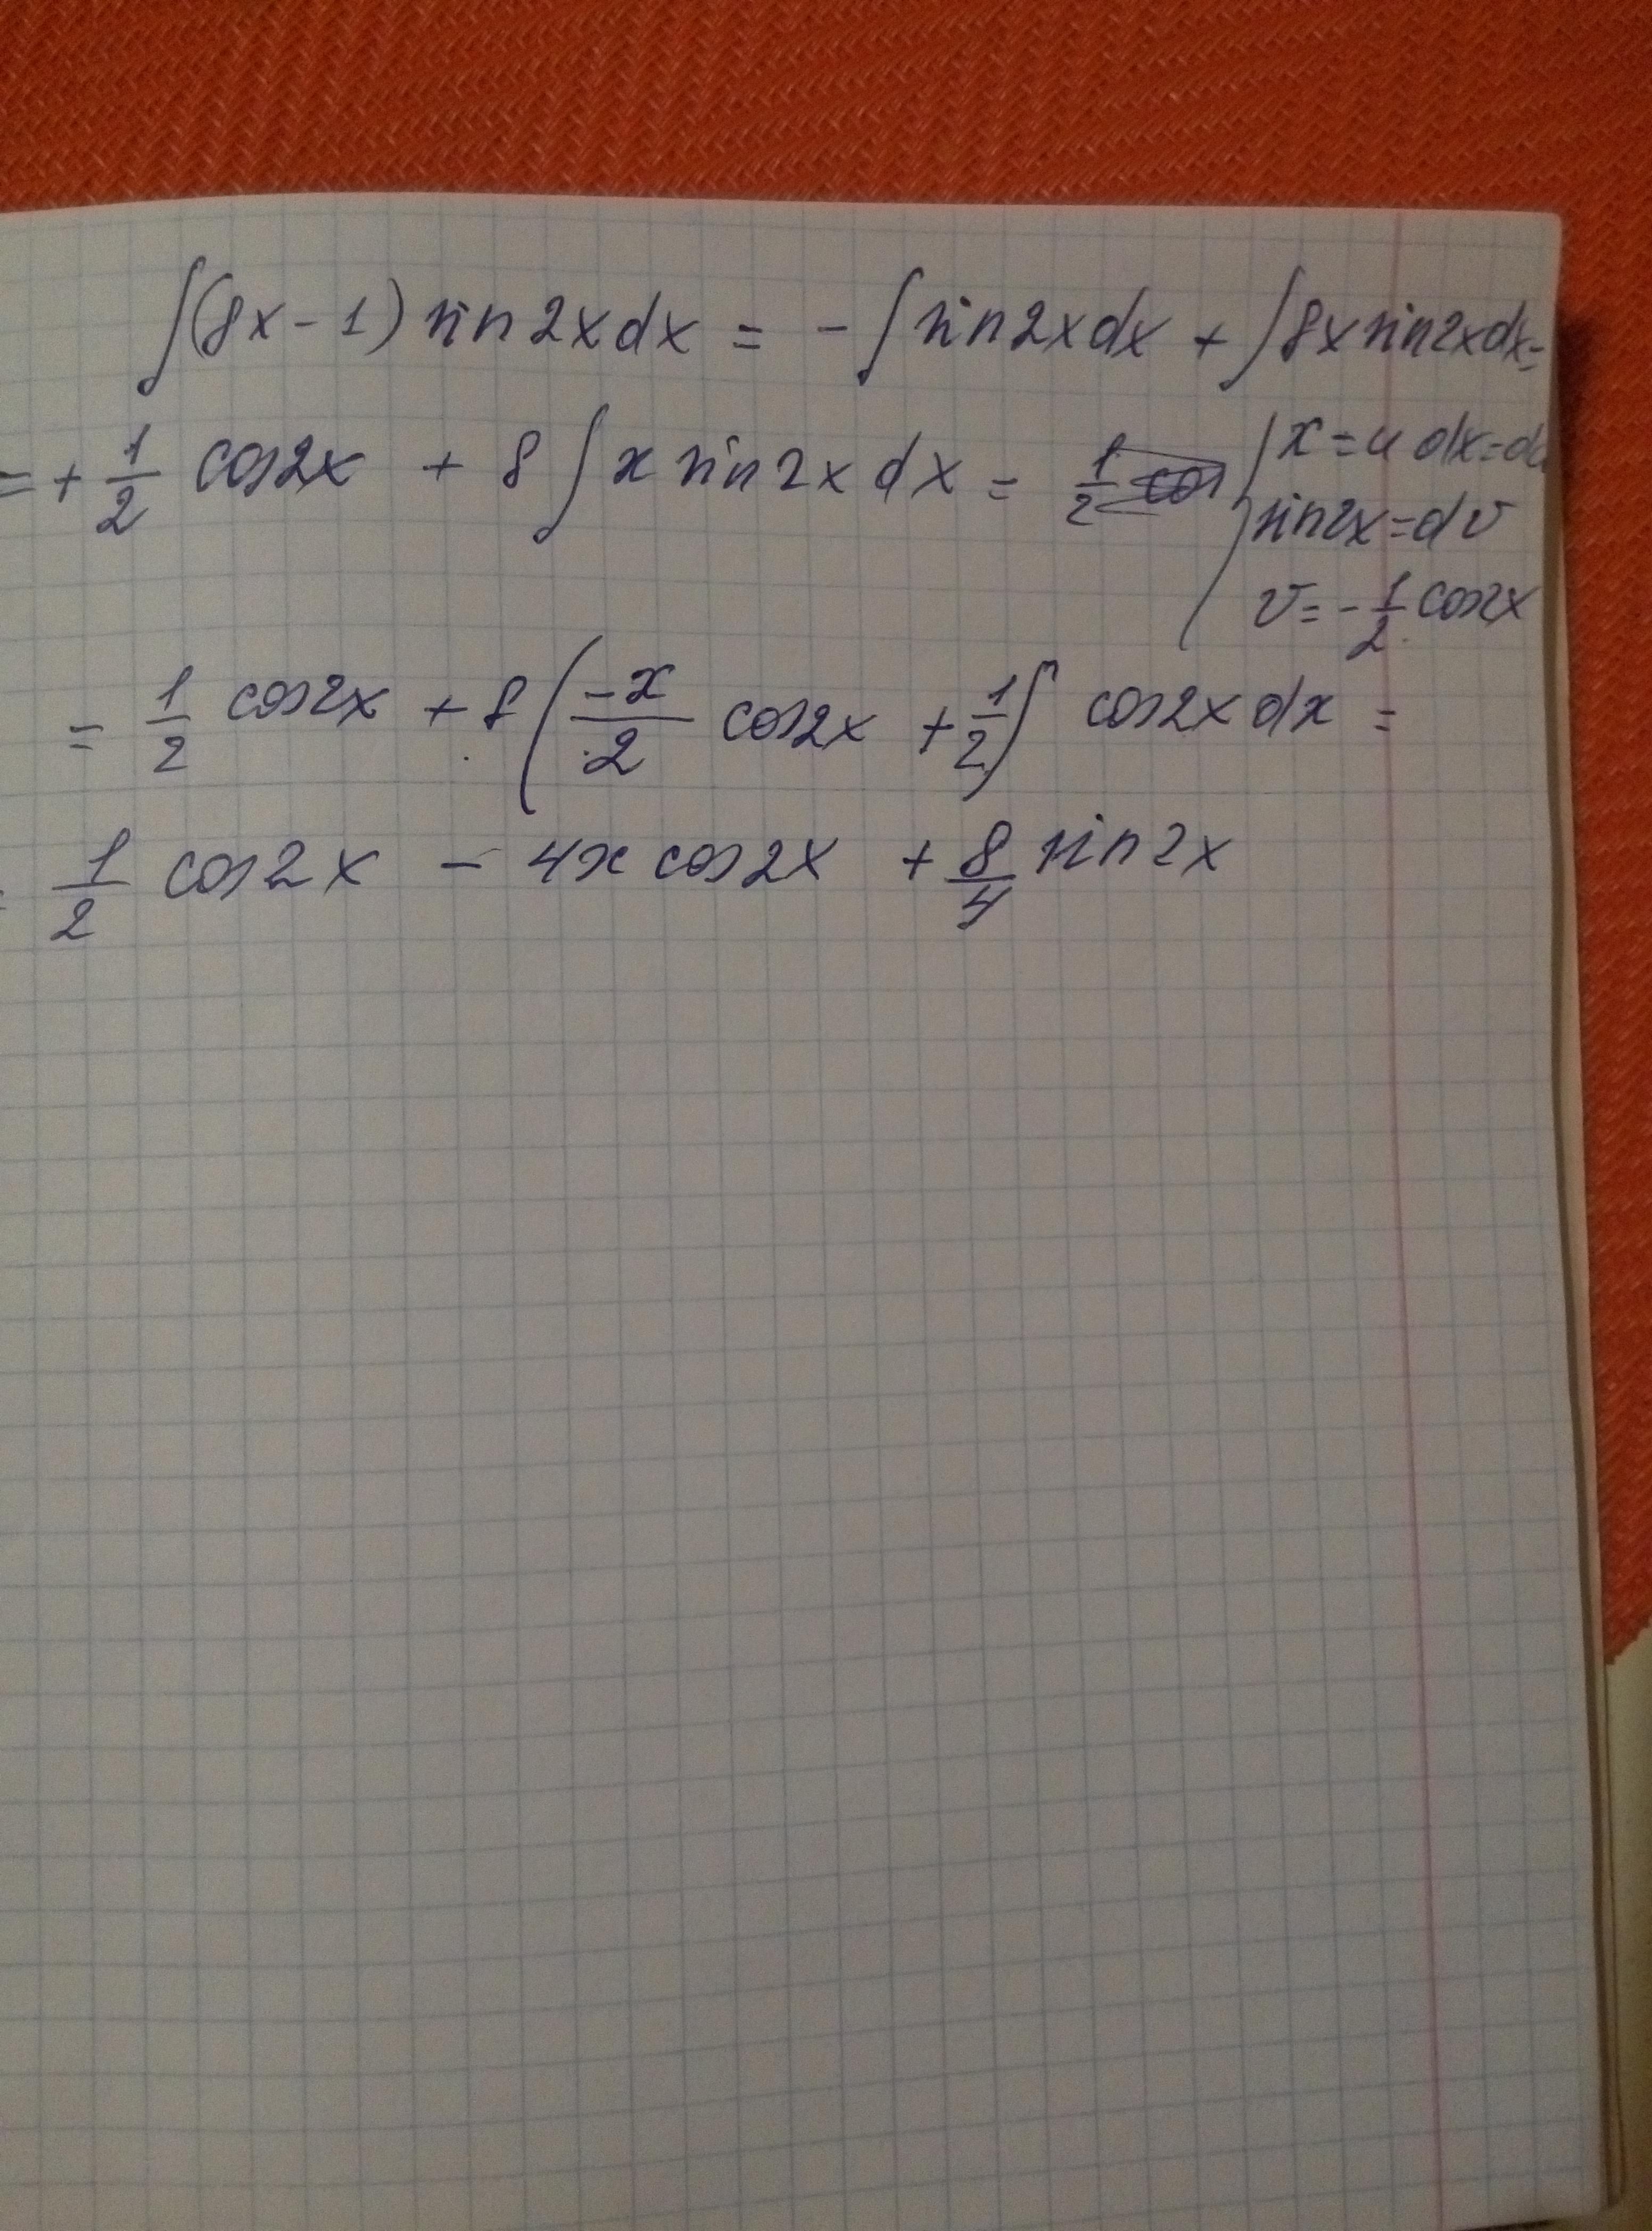 ∫(8x-1) sin2xdx = -∫sin2xdx + ∫8xsin2xdx=
=+ 1/2 cos2x + 8∫x sin2x dx = 1/2
x=u dx=du
sin2x=dv
v=-1/2 cos2x
= 1/2 cos2x + 8(-x/2 cos2x + 1/2∫cos2x dx =
= 1/2 cos2x - 4x cos2x + 8/4 sin2x